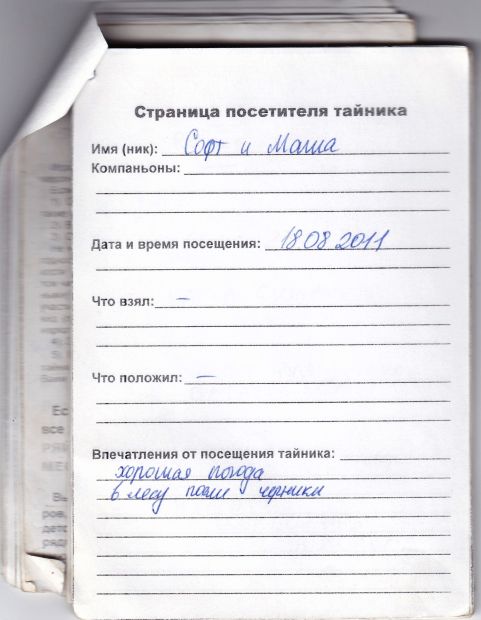 Страница посетителя тайника
Имя (ник): Софт и Маша
Компаньоны:
Дата и время посещения: 18 08 2011
Что взял: –
Что положил: –
Впечатления от посещения тайника:
хорошая погода
в лесу поели черники